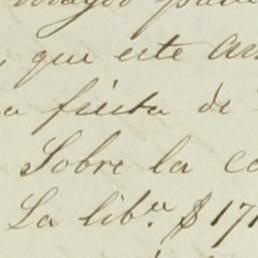 que este
a fiesta de
Sobre la
La lib.ª $ 171